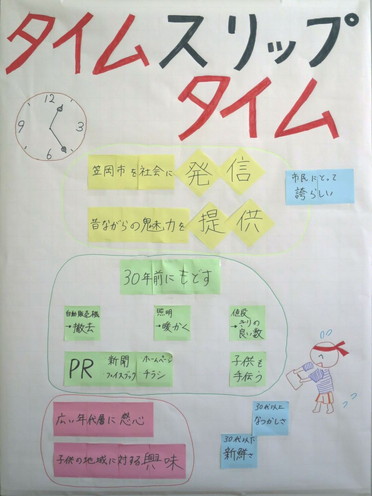 タイムスリップ
タイム
12
3
6
9
笠岡市を社会に発信
市民にとって
誇らしい
昔ながらの魅力を提供
30年前にもどす
自動販売機
→撤去
照明
→暖かく
値段
→きりの
良い数
PR
新聞
フェイスブック
ホームページ
チラシ
子供を
手伝う
広い年代層に感心
30代以上
なつかしさ
子供の地域に対する興味
30代以下
新鮮さ